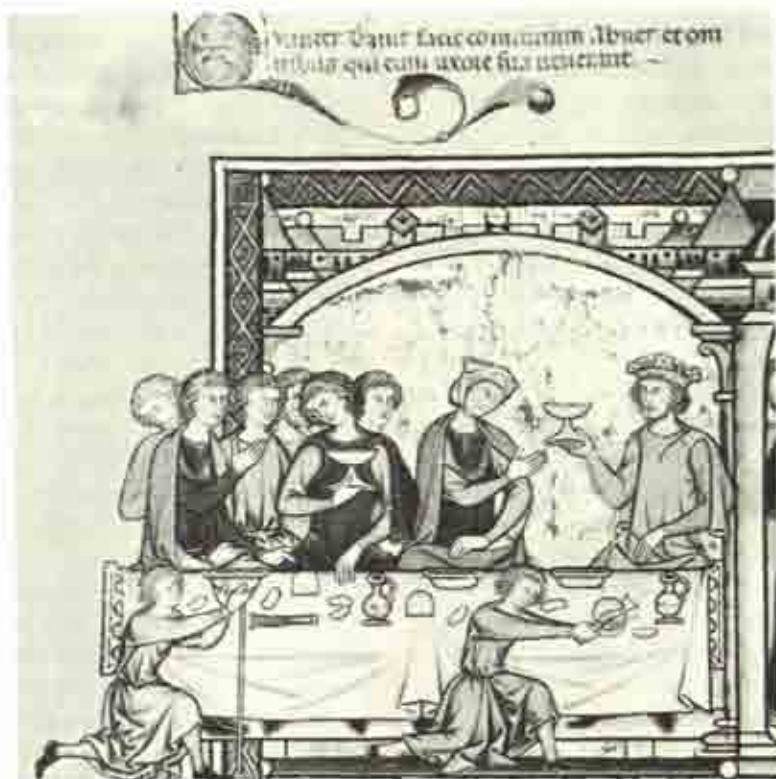 Dauit facit conuiuium Abner et om
nibus qui cum uxore sua uenerunt